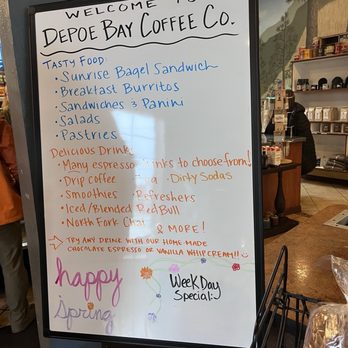 WELCOME TO
DEPOE BAY COFFEE CO.
TASTY FOOD
• Sunrise Bagel Sandwich
• Breakfast Burritos
• Sandwiches & Panini
• Salads
• Pastries
Delicious Drinks
• Many espresso drinks to choose from!
• Drip coffee • Tea • Dirty Sodas
• Smoothies • Refreshers
• Iced/Blended Red Bull
• North Fork Chai & MORE!
→ TRY ANY DRINK WITH OUR HOME MADE
CHOCOLATE ESPRESSO OR VANILLA WHIP CREAM!!
happy
spring
Week Day
Special: